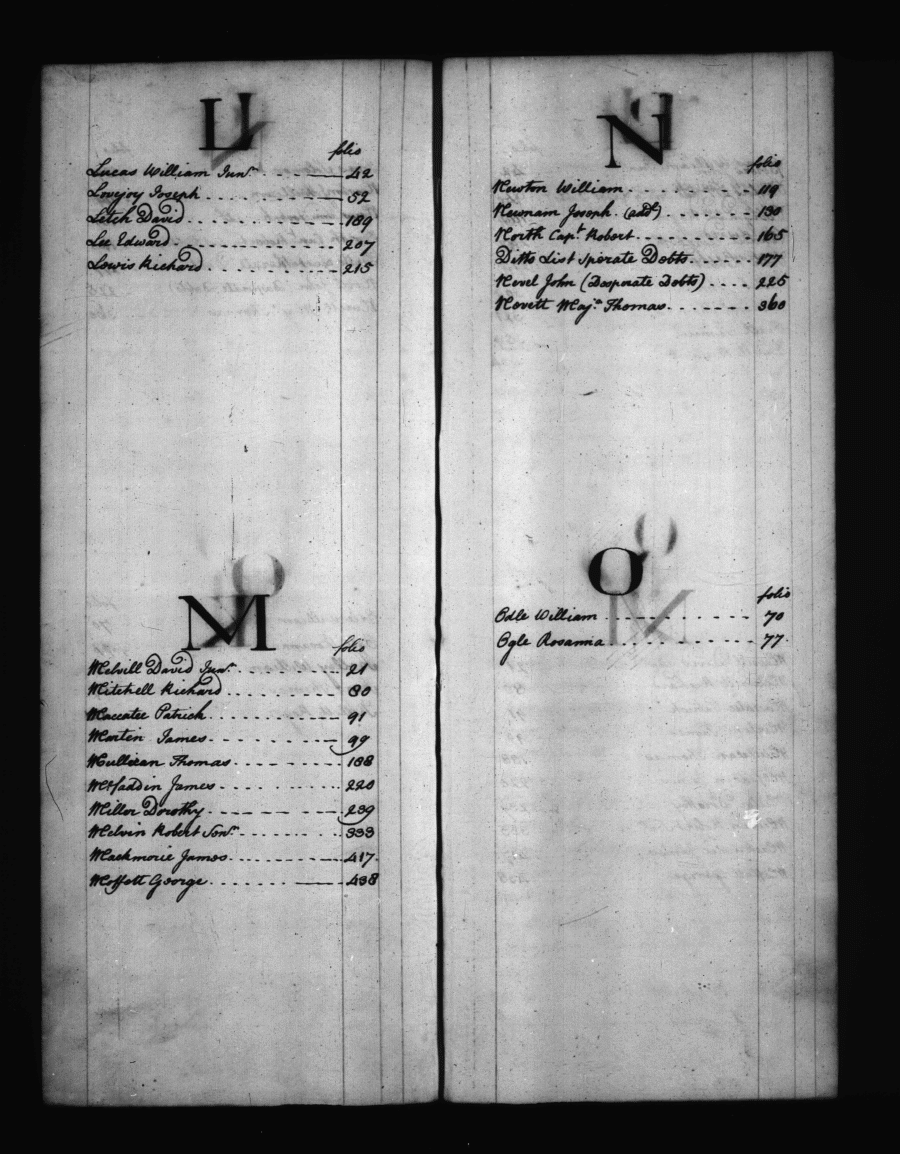 L
folio
Lucas William Junr. 42
Lovejoy Joseph 52
Letch David 189
Lee Edward 207
Lewis Richard 215
M
folio
Melvill David Junr. 21
Mitchell Richard 80
Maccatee Patrick 91
Martin James 99
Mullican Thomas 188
McFaddin James 220
Miller Dorothy 239
Melvin Robert Senr. 333
Mackmorie James 417
Moffett George 438
N
folio
Newton William 119
Newnam Joseph. (add) 130
North Capt Robert 165
Ditto List Sperate Debts 177
Nevel John (Desperate Debts) 225
Nevett Majr. Thomas 360
O
folio
Odle William 70
Ogle Rosanna 77